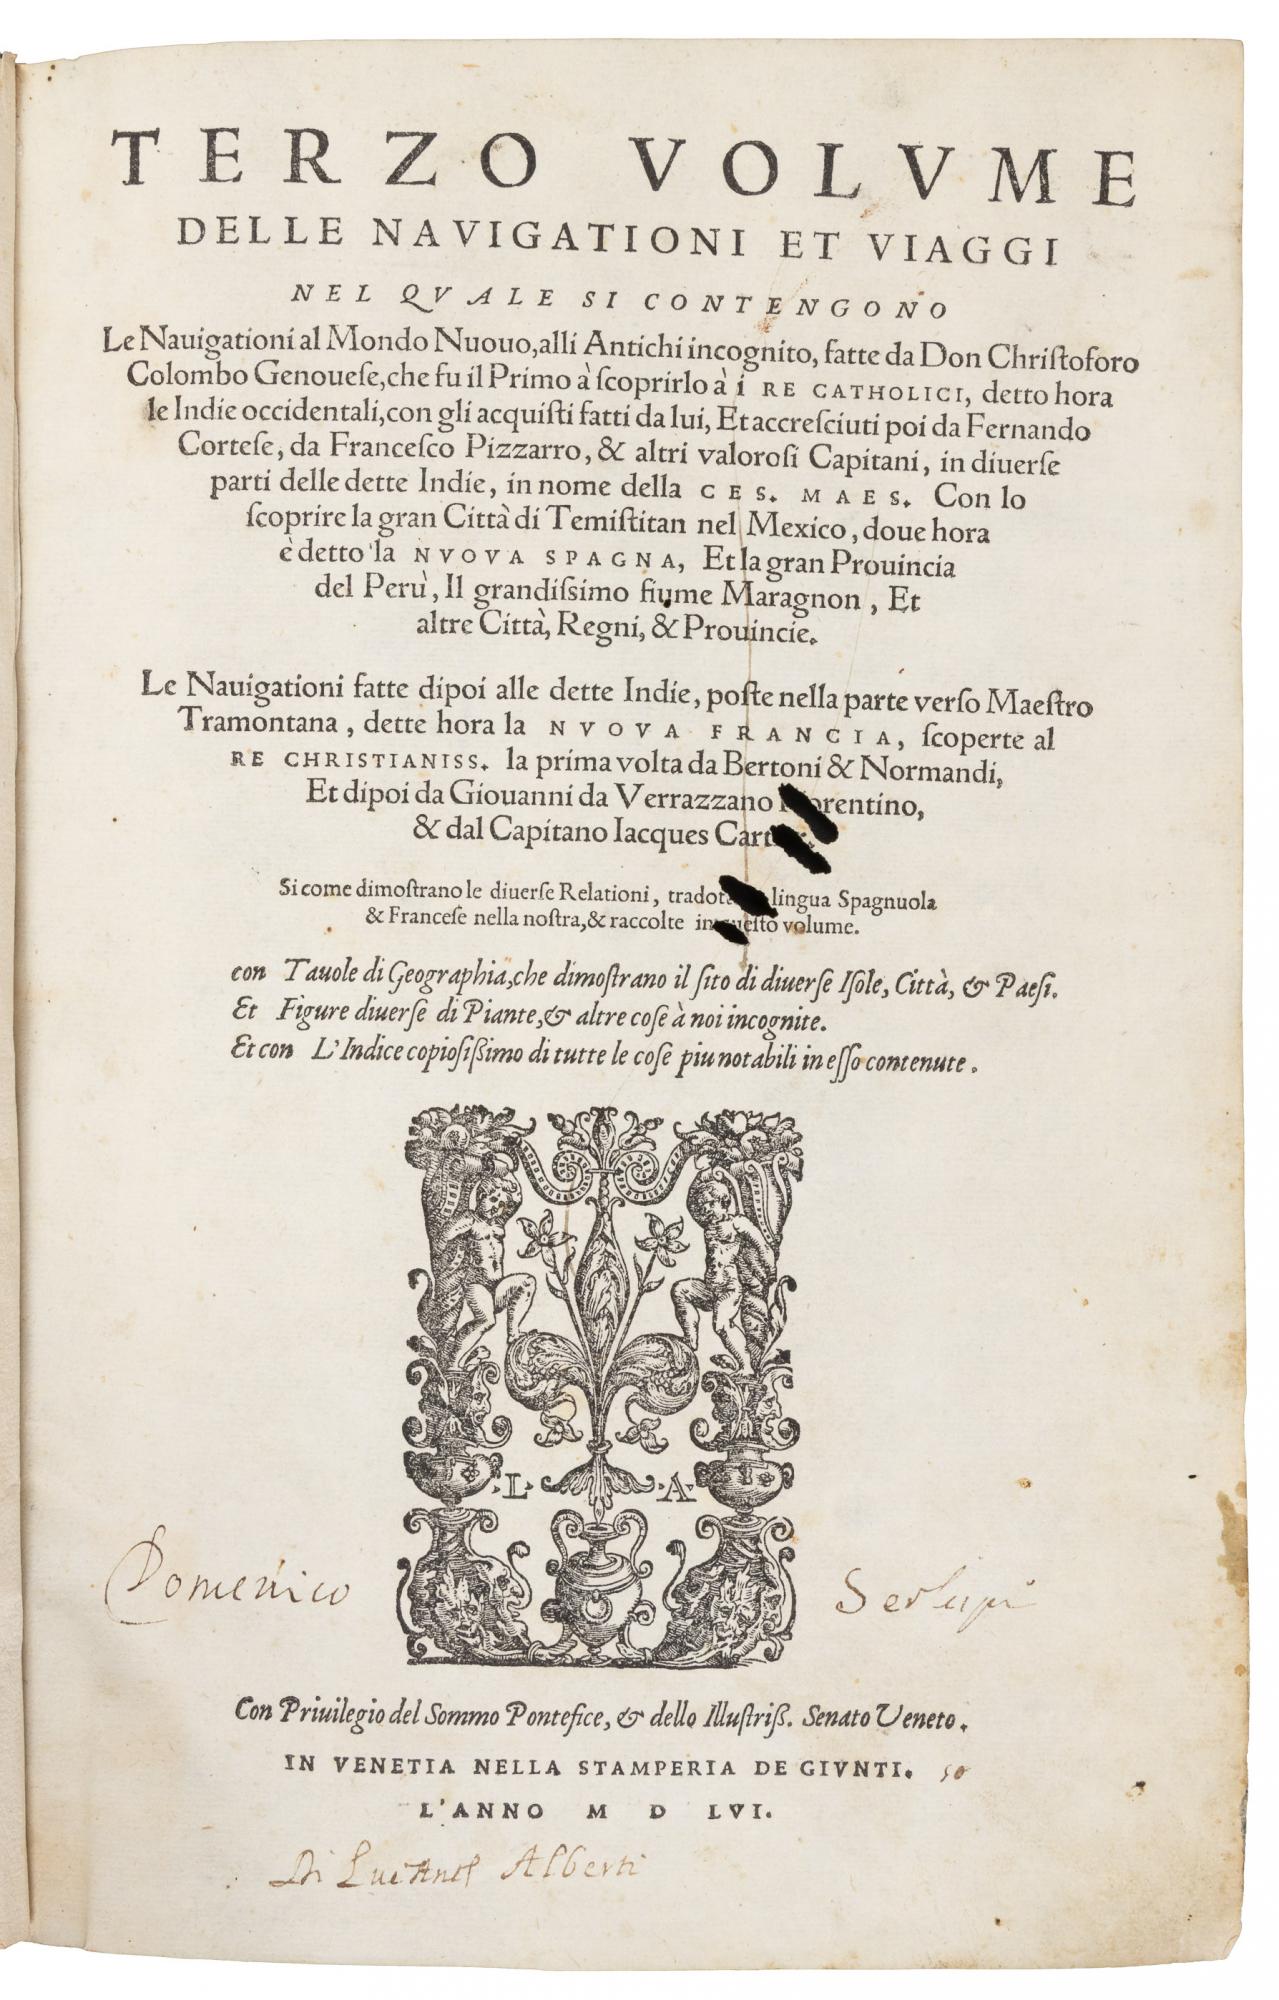 TERZO VOLVME
DELLE NAVIGATIONI ET VIAGGI
NEL QVALE SI CONTENGONO
Le Nauigationi al Mondo Nuouo, alli Antichi incognito, fatte da Don Chriſtoforo
Colombo Genoueſe, che fu il Primo à ſcoprirlo à i RE CATHOLICI, detto hora
le Indie occidentali, con gli acquiſti fatti da lui, Et accreſciuti poi da Fernando
Corteſe, da Franceſco Pizzarro, & altri valoroſi Capitani, in diuerſe
parti delle dette Indie, in nome della CES. MAES. Con lo
ſcoprire la gran Città di Temiſtitan nel Mexico, doue hora
è detto la NVOVA SPAGNA, Et la gran Prouincia
del Perù, Il grandiſsimo fiume Maragnon, Et
altre Città, Regni, & Prouincie.
Le Nauigationi fatte dipoi alle dette Indie, poſte nella parte verſo Maeſtro
Tramontana, dette hora la NVOVA FRANCIA, ſcoperte al
RE CHRISTIANISS. la prima volta da Bertoni & Normandi,
Et dipoi da Giouanni da Verrazzano
& dal Capitano Iacques
Si come dimoſtrano le diuerſe Relationi, lingua Spagnuola
& Franceſe nella noſtra, & raccolte in volume.
con Tauole di Geographia, che dimoſtrano il ſito di diuerſe Iſole, Città, & Paeſi.
Et Figure diuerſe di Piante, & altre coſe à noi incognite.
Et con L'Indice copioſißimo di tutte le coſe piu notabili in eſſo contenute.
·L· ·A·
Domenico Serlupi
Con Priuilegio del Sommo Pontefice, & dello Illuſtriß. Senato Veneto.
IN VENETIA NELLA STAMPERIA DE GIVNTI. 50
L'ANNO M D LVI.
Di Alberti